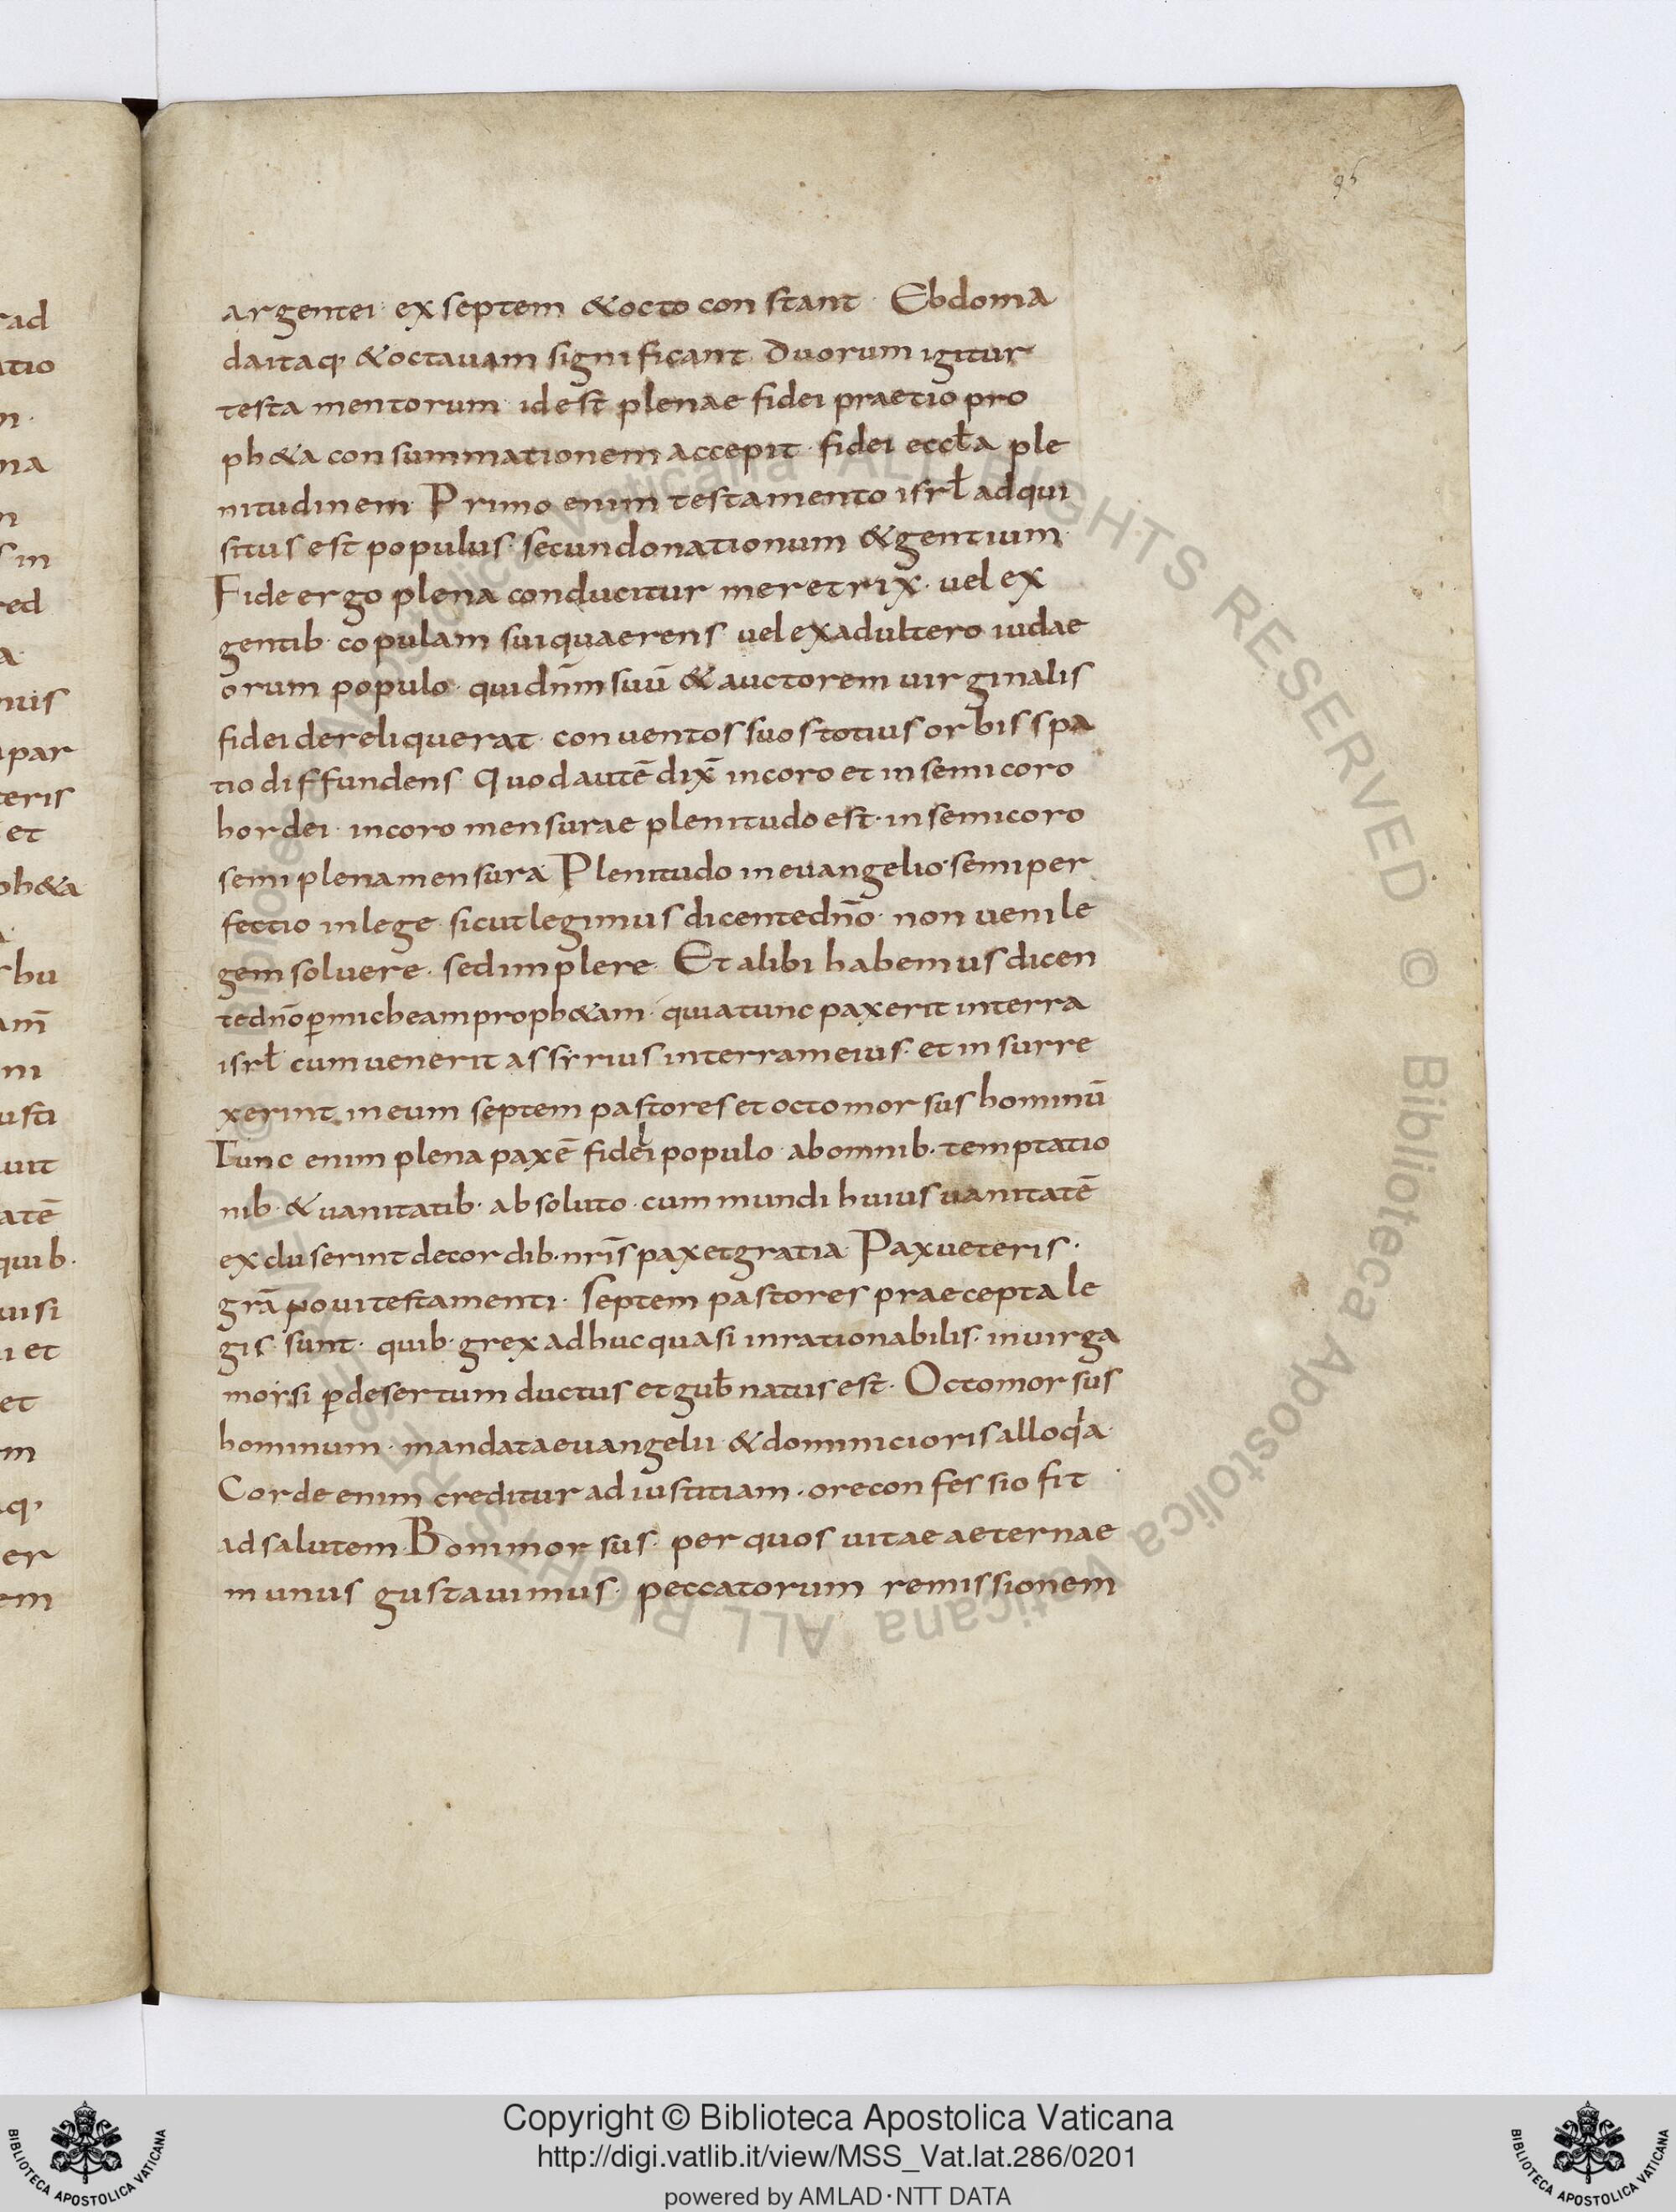 95
argentei · ex septem & octo constant · Ebdoma
da itaq· & octauam significant · Duorum igitur
testamentorum · id est plenae fidei praetio pro
ph&a consummationem accepit · fidei eccła ple
nitudinem · Primo enim testamento isrł adqui
situs est populus · secundo nationum & gentium ·
Fide ergo plena conducitur meretrix · uel ex
gentib· copulam sui quaerens uel ex adultero iudae
orum populo · qui dñm suū & auctorem uirginalis
fidei dereliquerat · conuentos suos totius orbis spa
tio diffundens · Quod autē dix̄ in coro et in semicoro
hordei · in coro mensurae plenitudo est · in semicoro
semiplena mensura · Plenitudo in euangelio · semiper
fectio in lege · sicut legimus dicente dño · non ueni le
gem soluere · sed implere · Et alibi habemus dicen
te dño p̄ micheam proph&am · quia tunc pax erit in terra
isrł cum uenerit assyrius in terram eius · et insurre
xerint in eum septem pastores et octo morsus hominū
Tunc enim plena pax ē fideli populo · ab omnib· temptatio
nib· & uanitatib· absoluto · cum mundi huius uanitatē
excluserint de cordib· nr̄is pax et gratia · Pax ueteris ·
gra̅ noui testamenti · Septem pastores praecepta le
gis sunt · quib· grex adhuc quasi inrationabilis · in uirga
morsi p̄ desertum ductus et gub̄natus est · Octo morsus
hominum · mandata euangelii & dominici oris alloqᶦa ·
Corde enim creditur ad iustitiam · ore confessio fit
ad salutem · Boni morsus · per quos uitae aeternae
munus gustauimus · peccatorum remissionem
rad
atio
m ·
ma
s in
red
a
nuis
par
teris
et
ph&a
rbu
am̄
usti
uit
atē
quib·
uisi
i et
et
m
aq·
er
em
© Biblioteca Apostolica Vaticana ALL RIGHTS RESERVED © Biblioteca Apostolica Vaticana ALL RIGHTS RESERVED
BIBLIOTECA APOSTOLICA VATICANA
Copyright © Biblioteca Apostolica Vaticana
http://digi.vatlib.it/view/MSS_Vat.lat.286/0201
powered by AMLAD·NTT DATA
BIBLIOTECA APOSTOLICA VATICANA